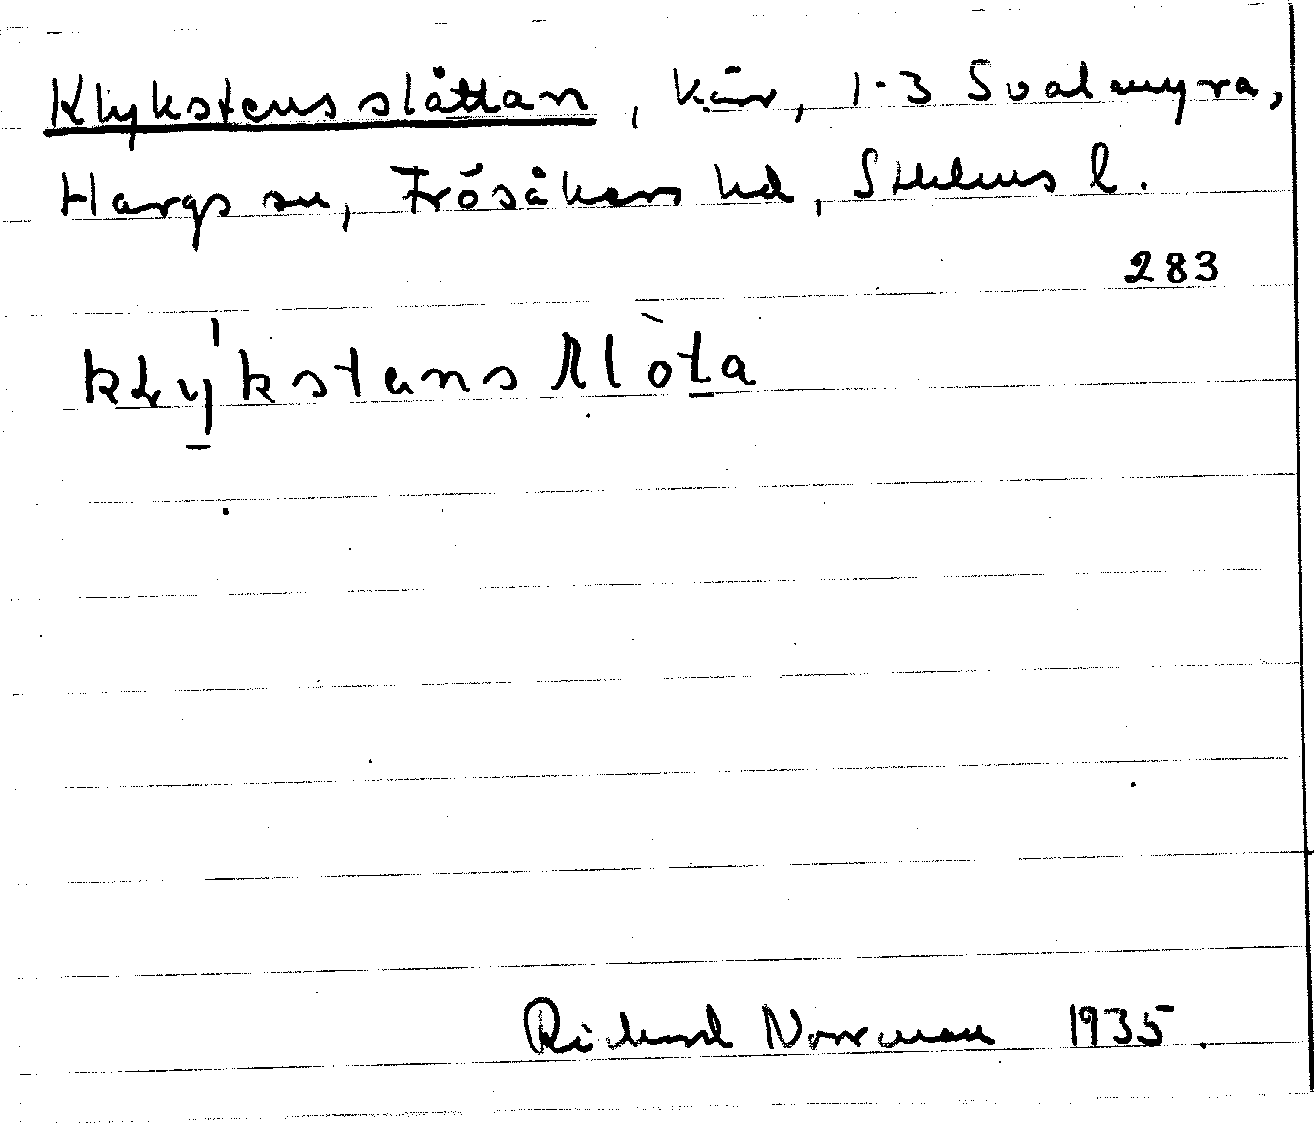 Klykstensslåttan, kärr, 1-3 Svalmyra,
Hargs sn, Frösåkers hd, Sthlms l.
283
Richard Norrman 1935.